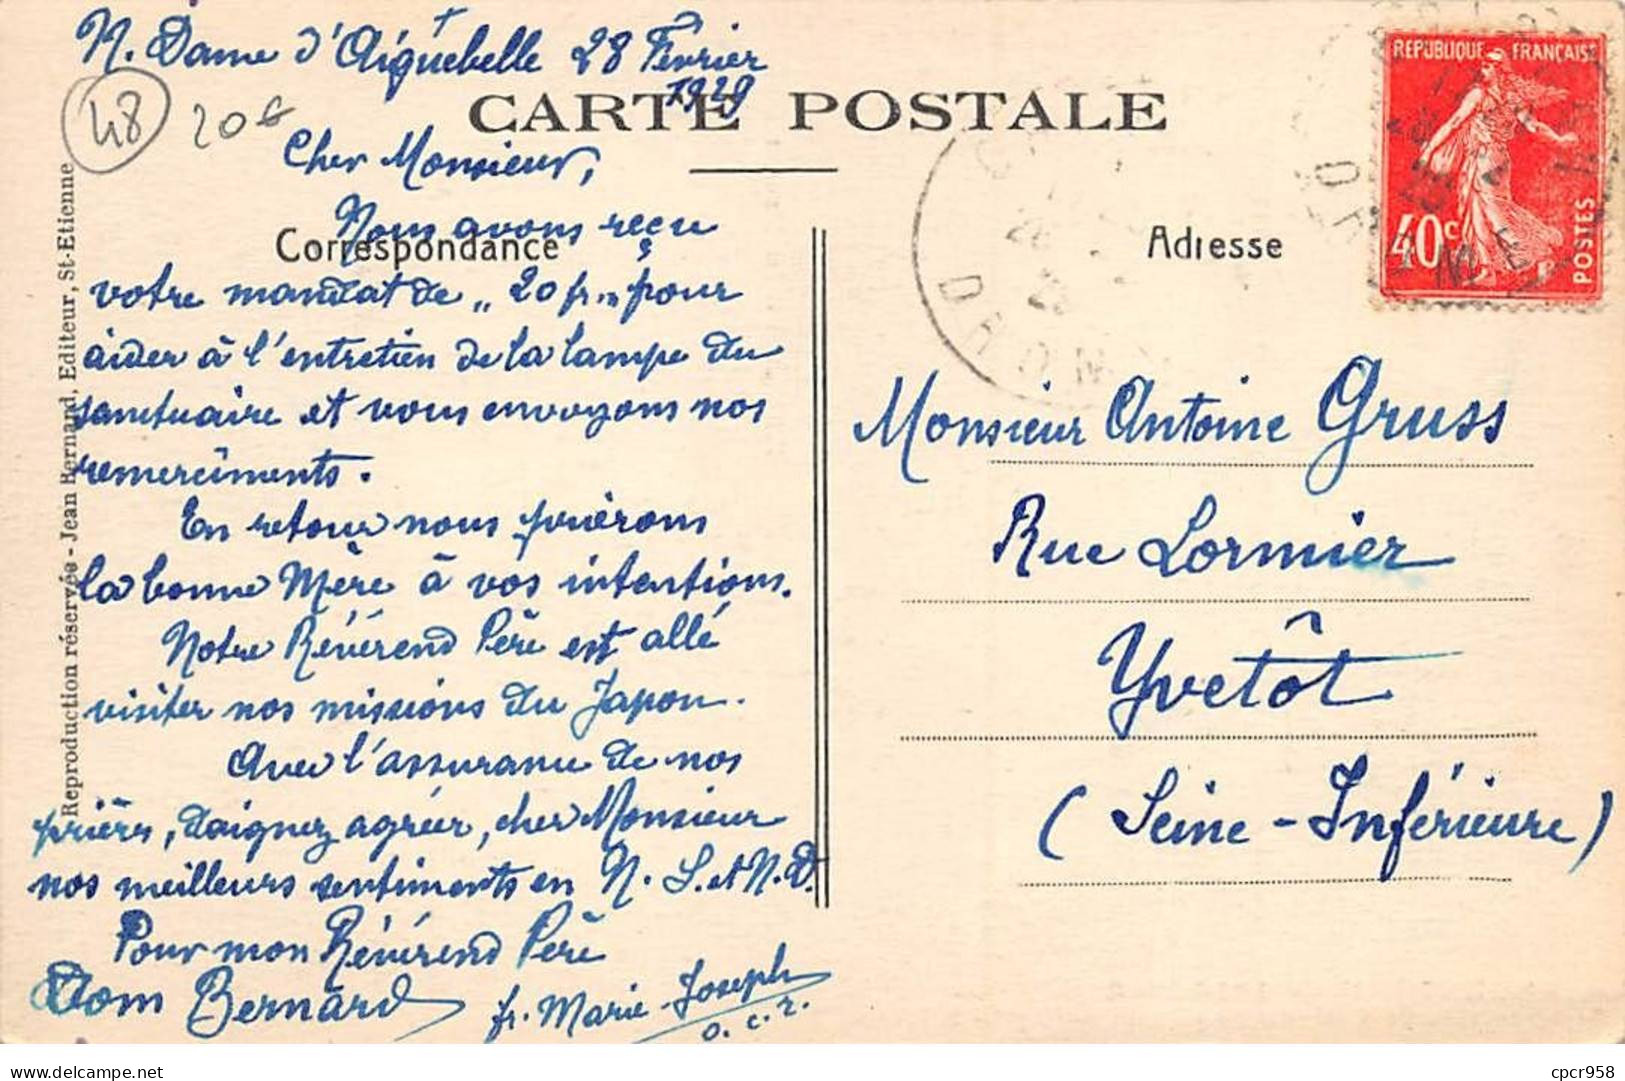 N. Dame d'Aiguebelle 28 Février
1929
48
20€
CARTE POSTALE
Cher Monsieur,
Correspondance
Nous avons reçu
votre mandat de „ 20 fr „ pour
aider à l'entretien de la lampe du
sanctuaire et vous envoyons nos
remercîments.
En retour nous prierons
la bonne Mère à vos intentions.
Notre Révérend Père est allé
visiter nos missions du Japon.
Avec l'assurance de nos
prières, daignez agréer, cher Monsieur
nos meilleurs sentiments en N. S. et N. D.
Pour mon Révérend Père
Dom Bernard
fr. Marie Joseph
o. c. r.
Reproduction réservée - Jean Bernand, Editeur, St-Etienne
Adresse
REPUBLIQUE FRANÇAISE
40c
POSTES
DROM
Monsieur Antoine Gruss
Rue Lormier
Yvetôt
(Seine-Inférieure)
cpcr958